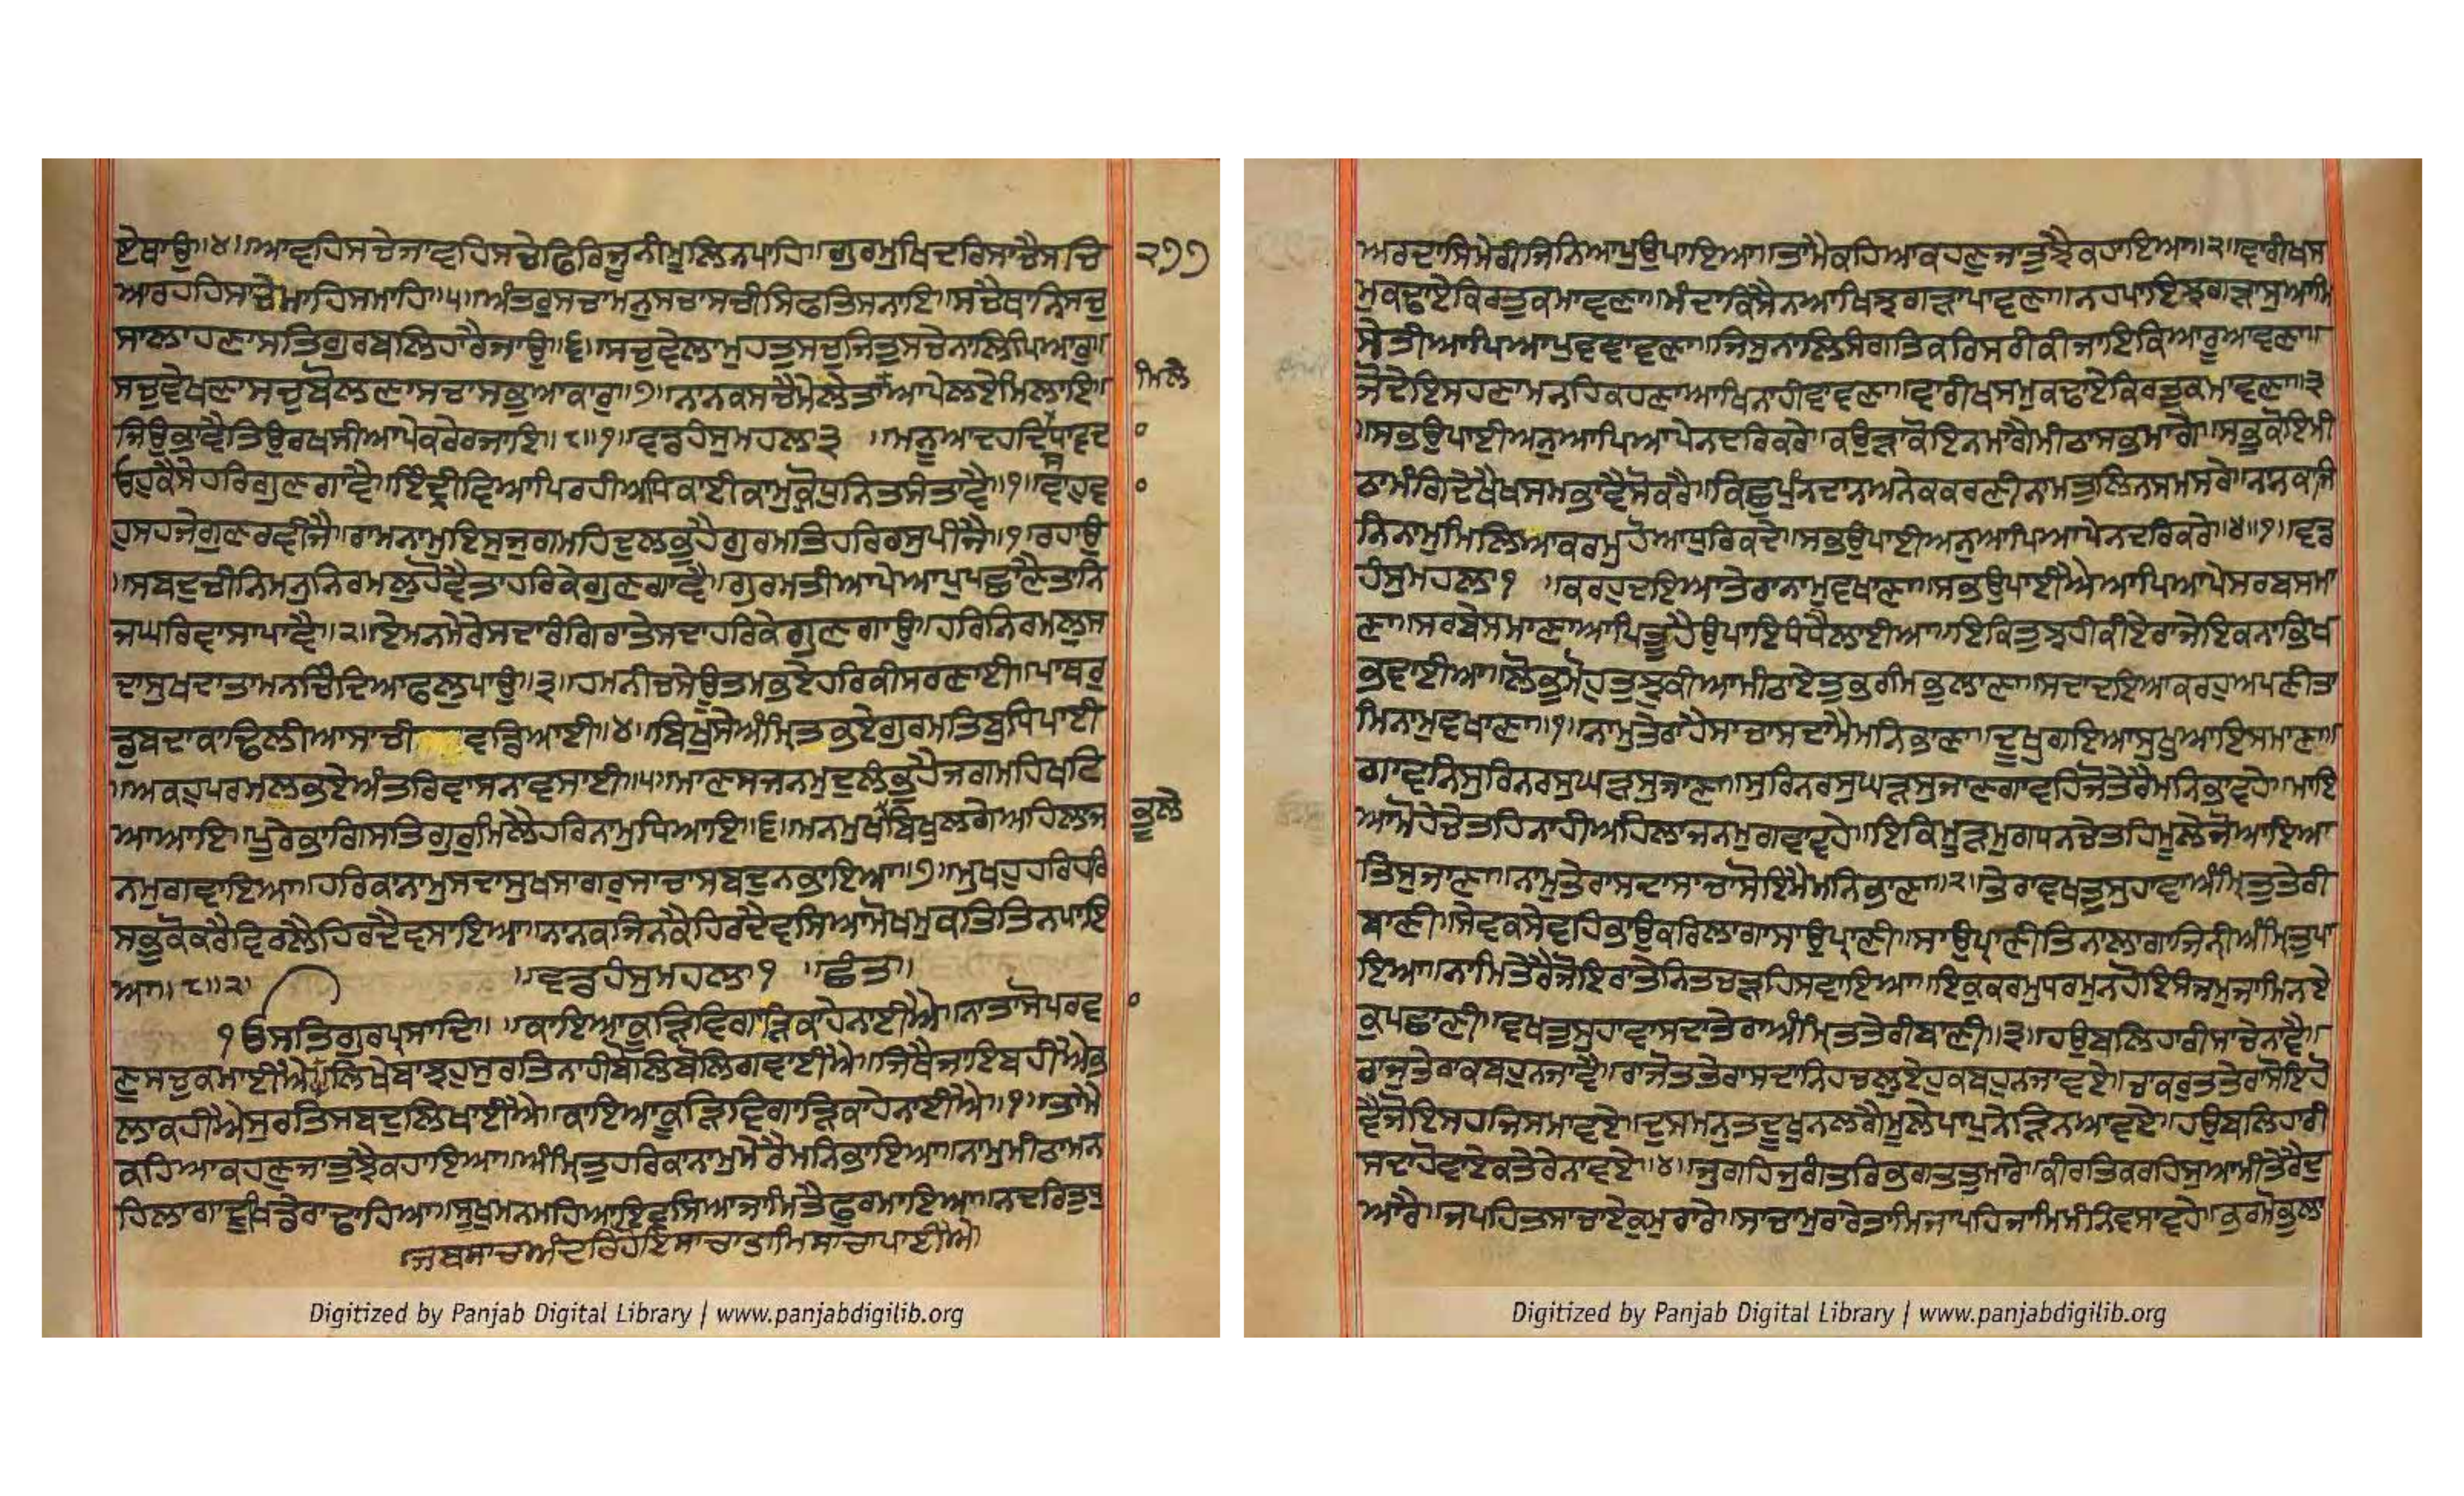 ਏਥਾਉ॥੪॥ਆਵਹਿਸਚੇਜਾਵਹਿਸਚੇਫਿਰਿਜੂਨੀਮੂਲਿਨਪਾਹਿ॥ਗੁਰਮੁਖਿਦਰਿਸਾਚੈਸਚਿ
੨੭੭
ਆਰਹਹਿਸਾਚੇਮਾਹਿਸਮਾਹਿ॥੫॥ਅੰਤਰੁਸਚਾਮਨੁਸਚਾਸਚੀਸਿਫਤਿਸਨਾਇ॥ਸਚੈਥਾਨਿਸਚੁ
ਸਾਲਾਹਣਾਸਤਿਗੁਰਬਲਿਹਾਰੈਜਾਉ॥੬॥ਸਚੁਵੇਲਾਮੂਹਤੁਸਚੁਜਿਤੁਸਚੇਨਾਲਿਪਿਆਰੁ॥
ਸਚੁਵੇਖਣਾਸਚੁਬੋਲਣਾਸਚਾਸਭੁਆਕਾਰੁ॥੭॥ਨਾਨਕਸਚੈਮੇਲੇਤਾਆਪੇਲਏਮਿਲਾਇ॥
ਮਿਲੇ
ਜਿਉਭਾਵੈਤਿਉਰਖਸੀਆਪੇਕਰੇਰਜਾਇ॥੮॥੧॥ਵਡਹੰਸੁਮਹਲਾ੩ ॥ਮਨੂਆਦਹਦਿਸਧਾਵਦ
ਓਹੁਕੈਸੇਹਰਿਗੁਣਗਾਵੈ॥ਇੰਦ੍ਰੀਵਿਆਪਿਰਹੀਅਧਿਕਾਈਕਾਮੁਕ੍ਰੋਧੁਨਿਤਸੰਤਾਵੈ॥੧॥ਵਾਹੁਵ
ਹੁਸਹਜੇਗੁਣਰਵੀਜੈ॥ਰਾਮਨਾਮੁਇਸੁਜੁਗਮਹਿਦੁਲਭੁਹੈਗੁਰਮਤਿਹਰਿਰਸੁਪੀਜੈ॥੧॥ਰਹਾਉ
॥ਸਬਦੁਚੀਨਿਮਨੁਨਿਰਮਲੁਹੋਵੈਤਾਹਰਿਕੇਗੁਣਗਾਵੈ॥ਗੁਰਮਤੀਆਪੇਆਪੁਪਛਾਣੈਤਾਨਿ
ਜਘਰਿਵਾਸਾਪਾਵੈ॥੨॥ਏਮਨਮੇਰੇਸਦਾਰੰਗਿਰਾਤੇਸਦਾਹਰਿਕੇਗੁਣਗਾਉ॥ਹਰਿਨਿਰਮਲੁਸ
ਦਾਸੁਖਦਾਤਾਮਨਚਿੰਦਿਆਫਲੁਪਾਉ॥੩॥ਹਮਨੀਚਸੇਊਤਮਭਏਹਰਿਕੀਸਰਣਾਈ॥ਪਾਥਰੁ
ਡੁਬਦਾਕਾਢਿਲੀਆਸਾਚੀ ਵਡਿਆਈ॥੪॥ਬਿਖੁਸੇਅੰਮ੍ਰਿਤਭਏਗੁਰਮਤਿਬੁਧਿਪਾਈ
॥ਅਕਹੁਪਰਮਲਭਏਅੰਤਰਿਵਾਸਨਾਵਸਾਈ॥੫॥ਮਾਣਸਜਨਮੁਦੁਲੰਭੁਹੈਜਗਮਹਿਖਟਿ
ਆਆਇ॥ਪੂਰੇਭਾਗਿਸਤਿਗੁਰੁਮਿਲੈਹਰਿਨਾਮੁਧਿਆਇ॥੬॥ਮਨਮੁਖਬਿਖੁਲਗੇਅਹਿਲਾਜ
ਭੂਲੇ
ਨਮੁਗਵਾਇਆ॥ਹਰਿਕਾਨਾਮੁਸਦਾਸੁਖਸਾਗਰੁਸਾਚਾਸਬਦੁਨਭਾਇਆ॥੭॥ਮੁਖਹੁਹਰਿਹਰਿ
ਸਭੁਕੋਕਰੈਵਿਰਲੈਹਿਰਦੈਵਸਾਇਆ॥ਨਾਨਕਜਿਨਕੈਹਿਰਦੈਵਸਿਆਮੋਖਮੁਕਤਿਤਿਨਪਾਇ
ਆ॥੮॥੨॥ ॥ਵਡਹੰਸੁਮਹਲਾ੧ ॥ਛੰਤ॥
੧ਓਸਤਿਗੁਰਪ੍ਰਸਾਦਿ॥ ॥ਕਾਇਆਕੂੜਿਵਿਗਾੜਿਕਾਹੇਨਾਈਐ॥ਨਾਤਾਸੋਪਰਵ
ਣੁਸਚੁਕਮਾਈਐ॥ ਲਿਖੇਬਾਝਹੁਸੁਰਤਿਨਾਹੀਬੋਲਿਬੋਲਿਗਵਾਈਐ॥ਜਿਥੈਜਾਇਬਹੀਐਭ
ਲਾਕਹੀਐਸੁਰਤਿਸਬਦੁਲਿਖਾਈਐ॥ਕਾਇਆਕੂੜਿਵਿਗਾੜਿਕਾਹੇਨਾਈਐ॥੧॥ਤਾਮੈ
ਕਹਿਆਕਹਣੁਜਾਤੁਝੈਕਹਾਇਆ॥ਅੰਮ੍ਰਿਤੁਹਰਿਕਾਨਾਮੁਮੇਰੈਮਨਿਭਾਇਆ॥ਨਾਮੁਮੀਠਾਮਨ
ਹਿਲਾਗਾਦੂਖਿਡੇਰਾਢਾਹਿਆ॥ਸੂਖੁਮਨਮਹਿਆਇਵਸਿਆਜਾਮਿਤੈਫੁਰਮਾਇਆ॥ਨਦਰਿਤੁਧੁ
॥ਜਬਸਾਚਅੰਦਰਿਹੋਇਸਾਚਾਤਾਮਿਸਾਚਾਪਾਈਐ॥
ਅਰਦਾਸਿਮੇਰੀਜਿੰਨਿਆਪੁਉਪਾਇਆ॥ਤਾਮੈਕਹਿਆਕਹਣੁਜਾਤੁਝੈਕਹਾਇਆ॥੨॥ਵਾਰੀਖਸ
ਮੁਕਢਾਏਕਿਰਤੁਕਮਾਵਣਾ॥ਮੰਦਾਕਿਸੈਨਆਖਿਝਗੜਾਪਾਵਣਾ॥ਨਹਪਾਇਝਗੜਾਸੁਆਮਿ
ਸੇਤੀਆਪਿਆਪੁਵਞਾਵਣਾ॥ਜਿਸੁਨਾਲਿਸੰਗਤਿਕਰਿਸਰੀਕੀਜਾਇਕਿਆਰੂਆਵਣਾ॥
ਜੋਦੇਇਸਹਣਾਮਨਹਿਕਹਣਾਆਖਿਨਾਹੀਵਾਵਣਾ॥ਵਾਰੀਖਸਮੁਕਢਾਏਕਿਰਤੁਕਮਾਵਣਾ॥੩
॥ਸਭਉਪਾਈਅਨੁਆਪਿਆਪੇਨਦਰਿਕਰੇ॥ਕਉੜਾਕੋਇਨਮਾਗੈਮੀਠਾਸਭਮਾਗੈ॥ਸਭੁਕੋਇਮੀ
ਠਾਮੰਗਿਦੇਖੈਖਸਮਭਾਵੈਸੋਕਰੇ॥ਕਿਛੁਪੁੰਨਦਾਨਅਨੇਕਕਰਣੀਨਾਮਤੁਲਿਨਸਮਸਰੇ॥ਨਨਕਜਿ
ਨਿਨਾਮੁਮਿਲਿਆਕਰਮੁਹੋਆਧੁਰਿਕਦੇ॥ਸਭਉਪਾਈਅਨੁਆਪਿਆਪੇਨਦਰਿਕਰੇ॥੪॥੧॥ਵਡ
ਹੰਸੁਮਹਲਾ੧ ॥ਕਰਹੁਦਇਆਤੇਰਾਨਾਮੁਵਖਾਣਾ॥ਸਭਉਪਾਈਐਆਪਿਆਪੇਸਰਬਸਮਾ
ਣਾ॥ਸਰਬੇਸਮਾਣਾਆਪਿਤੂਹੈਉਪਾਇਧੰਧੈਲਾਈਆ॥ਇਕਿਤੁਝਹੀਕੀਏਰਾਜੇਇਕਨਾਭਿਖ
ਭਵਾਈਆ॥ਲੋਭੁਮੋਹੁਤੁਝੁਕੀਆਮੀਠਾਏਤੁਭਰਮਿਭੁਲਾਣਾ॥ਸਦਾਦਇਆਕਰਹੁਅਪਣੀਤਾ
ਮਿਨਾਮੁਵਖਾਣਾ॥੧॥ਨਾਮੁਤੇਰਾਹੈਸਾਚਾਸਦਾਮੈਮਨਿਭਾਣਾ॥ਦੂਖੁਗਇਆਸੁਖੁਆਇਸਮਾਣਾ॥
ਗਾਵਨਿਸੁਰਿਨਰਸੁਘੜਸੁਜਾਣਾ॥ਸੁਰਿਨਰਸੁਘੜਸੁਜਾਣਗਾਵਹਿਜੋਤੇਰੈਮਨਿਭਾਵਹੇ॥ਮਾਇ
ਆਮੋਹੇਚੇਤਹਿਨਾਹੀਅਹਿਲਾਜਨਮੁਗਵਾਵਹੇ॥ਇਕਿਮੂੜਮੁਗਧਨਚੇਤਹਿਮੂਲੇਜੋਆਇਆ
ਤਿਸੁਜਾਣਾ॥ਨਾਮੁਤੇਰਾਸਦਾਸਾਚਾਸੋਇਮੈਮਨਿਭਾਣਾ॥੨॥ਤੇਰਾਵਖਤੁਸੁਹਾਵਾਅੰਮ੍ਰਿਤੁਤੇਰੀ
ਬਾਣੀ॥ਸੇਵਕਸੇਵਹਿਭਾਉਕਰਿਲਾਗਾਸਾਉਪ੍ਰਾਣੀ॥ਸਾਉਪ੍ਰਾਣੀਤਿਨਾਲਾਗਾਜਿਨੀਅੰਮ੍ਰਿਤੁਪਾ
ਇਆ॥ਨਾਮਿਤੇਰੈਜੋਇਰਾਤੇਨਿਤਚੜਹਿਸਵਾਇਆ॥ਇਕੁਕਰਮੁਧਰਮੁਨਹੋਇਸੰਜਮੁਜਾਮਿਨਏ
ਕੁਪਛਾਣੀ॥ਵਖਤੁਸੁਹਾਵਾਸਦਾਤੇਰਾਅੰਮ੍ਰਿਤਤੇਰੀਬਾਣੀ॥੩॥ਹਉਬਲਿਹਾਰੀਸਾਚੇਨਾਵੈ॥
ਰਾਜੁਤੇਰਾਕਬਹੁਨਜਾਵੈ॥ਰਾਜੋਤਤੇਰਾਸਦਾਨਿਹਚਲੁਏਹੁਕਬਹੁਨਜਾਵਏ॥ਚਾਕਰੁਤਤੇਰਾਸੋਇਹੋ
ਵੈਜੋਇਸਹਜਿਸਮਾਵਏ॥ਦੁਸਮਨੁਤਦੂਖੁਨਲਗੈਮੂਲੇਪਾਪੁਨੇੜਿਨਆਵਏ॥ਹਉਬਲਿਹਾਰੀ
ਸਦਾਹੋਵਾਏਕਤੇਰੇਨਾਵਏ॥੪॥ਜੁਗਹਜੁਗੰਤਰਿਭਗਤਤੁਮਾਰੇ॥ਕੀਰਤਿਕਰਹਿਸੁਆਮੀਤੇਰੈਦੁ
ਆਰੈ॥ਜਪਹਿਤਸਾਚਾਏਕੁਮੁਰਾਰੇ॥ਸਾਚਾਮੁਰਾਰੇਤਾਮਿਜਾਪਹਿਜਾਮਿਮੰਨਿਵਸਾਵਹੇ॥ਭਰਮੋਭੁਲਾ
Digitized by Panjab Digital Library | www.panjabdigilib.org
Digitized by Panjab Digital Library | www.panjabdigilib.org